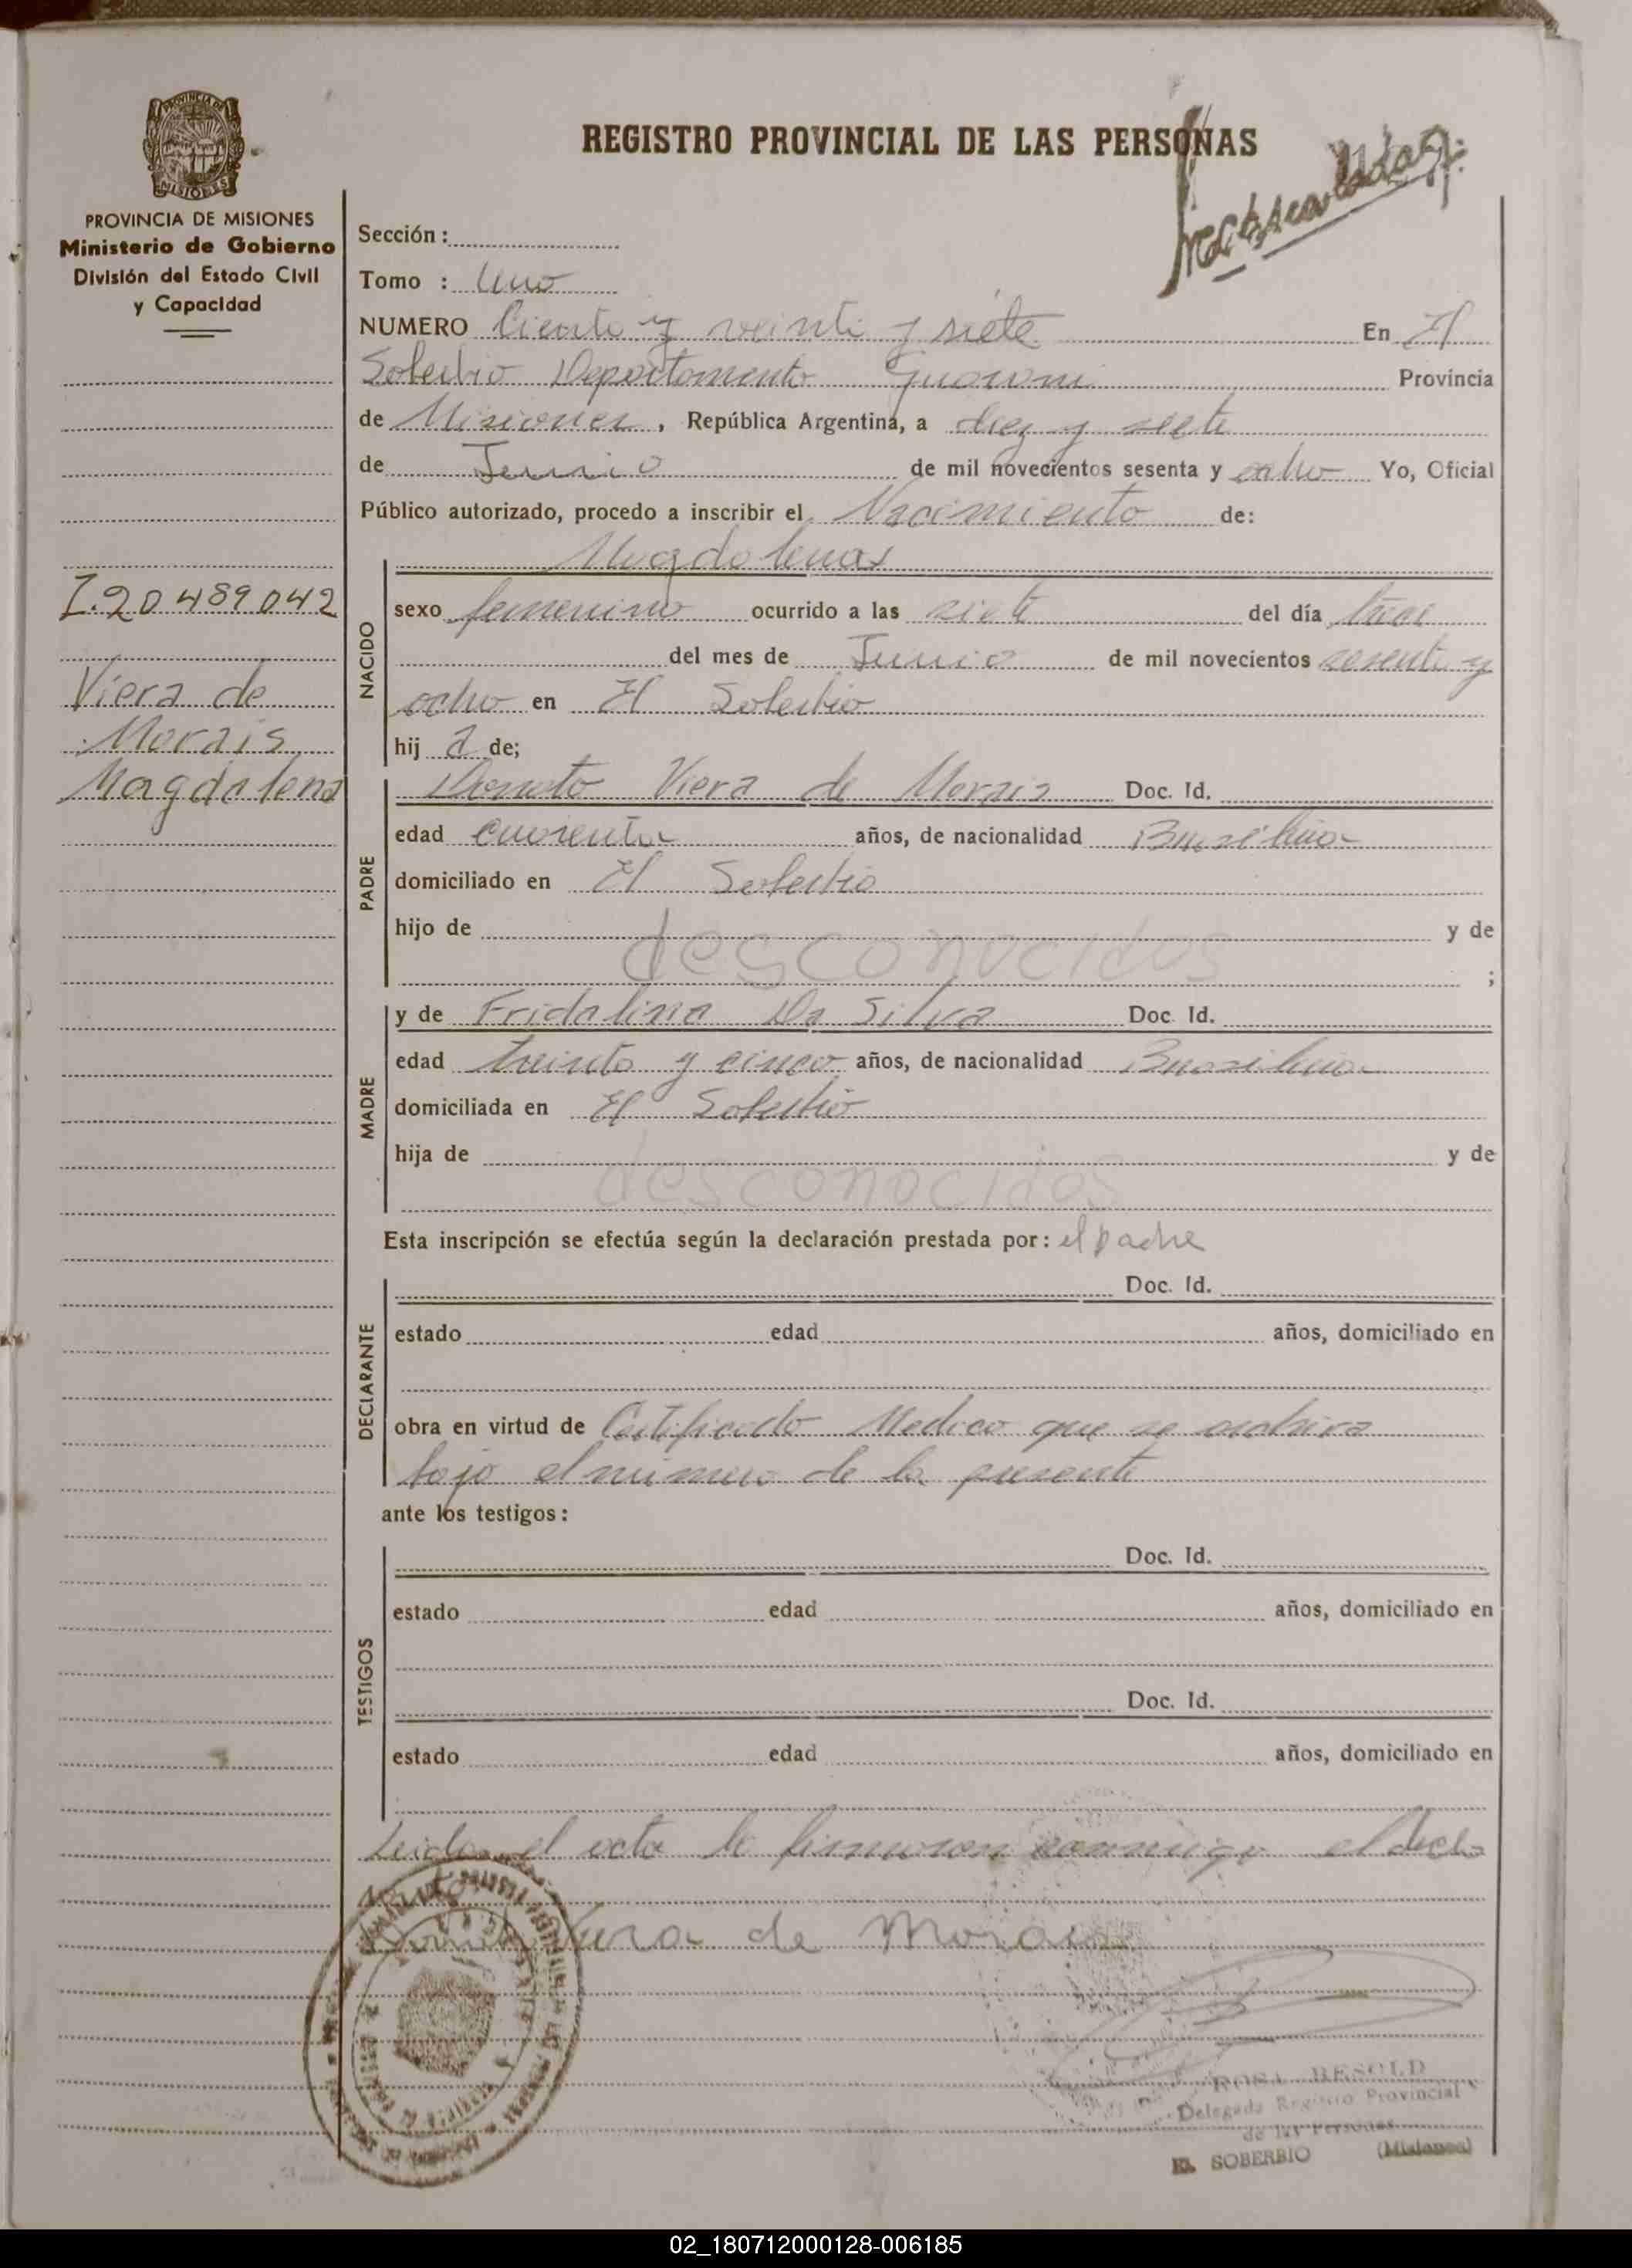 REGISTRO PROVINCIAL DE LAS PERSONAS
PROVINCIA DE
MISIONES
PROVINCIA DE MISIONES
Ministerio de Gobierno
División del Estado Civil
y Capacidad
I.20489042
Viera de
Morais
Magdalena
Sección :
Tomo : Uno
NUMERO Ciento y veinti y siete En El
Soberbio Departamento Guarani Provincia
de Misiones, República Argentina, a diez y siete
de Junio de mil novecientos sesenta y ocho Yo, Oficial
Público autorizado, procedo a inscribir el Nacimiento de:
Magdalena
NACIDO
sexo femenino ocurrido a las siete del día trece
del mes de Junio de mil novecientos sesenta y
ocho en El Soberbio
hij a de;
PADRE
Donato Viera de Morais Doc. Id.
edad cuarenta años, de nacionalidad
domiciliado en El Soberbio
hijo de desconocidos y de
;
MADRE
y de Fridalina Da Silva Doc. Id.
edad treinta y cinco años, de nacionalidad
domiciliada en El Soberbio
hija de desconocidos y de
Esta inscripción se efectúa según la declaración prestada por: el padre
DECLARANTE
Doc. Id.
estado edad años, domiciliado en
obra en virtud de Certificado Medico que se archiva
bajo el numero de la presente
ante los testigos:
TESTIGOS
Doc. Id.
estado edad años, domiciliado en
Doc. Id.
estado edad años, domiciliado en
Leida el acta la firmaron conmigo el decla
Viera de Morais
ROSA BESOLD
Delegada Registro Provincial
de las Personas
EL SOBERBIO (Misiones)
02_180712000128-006185